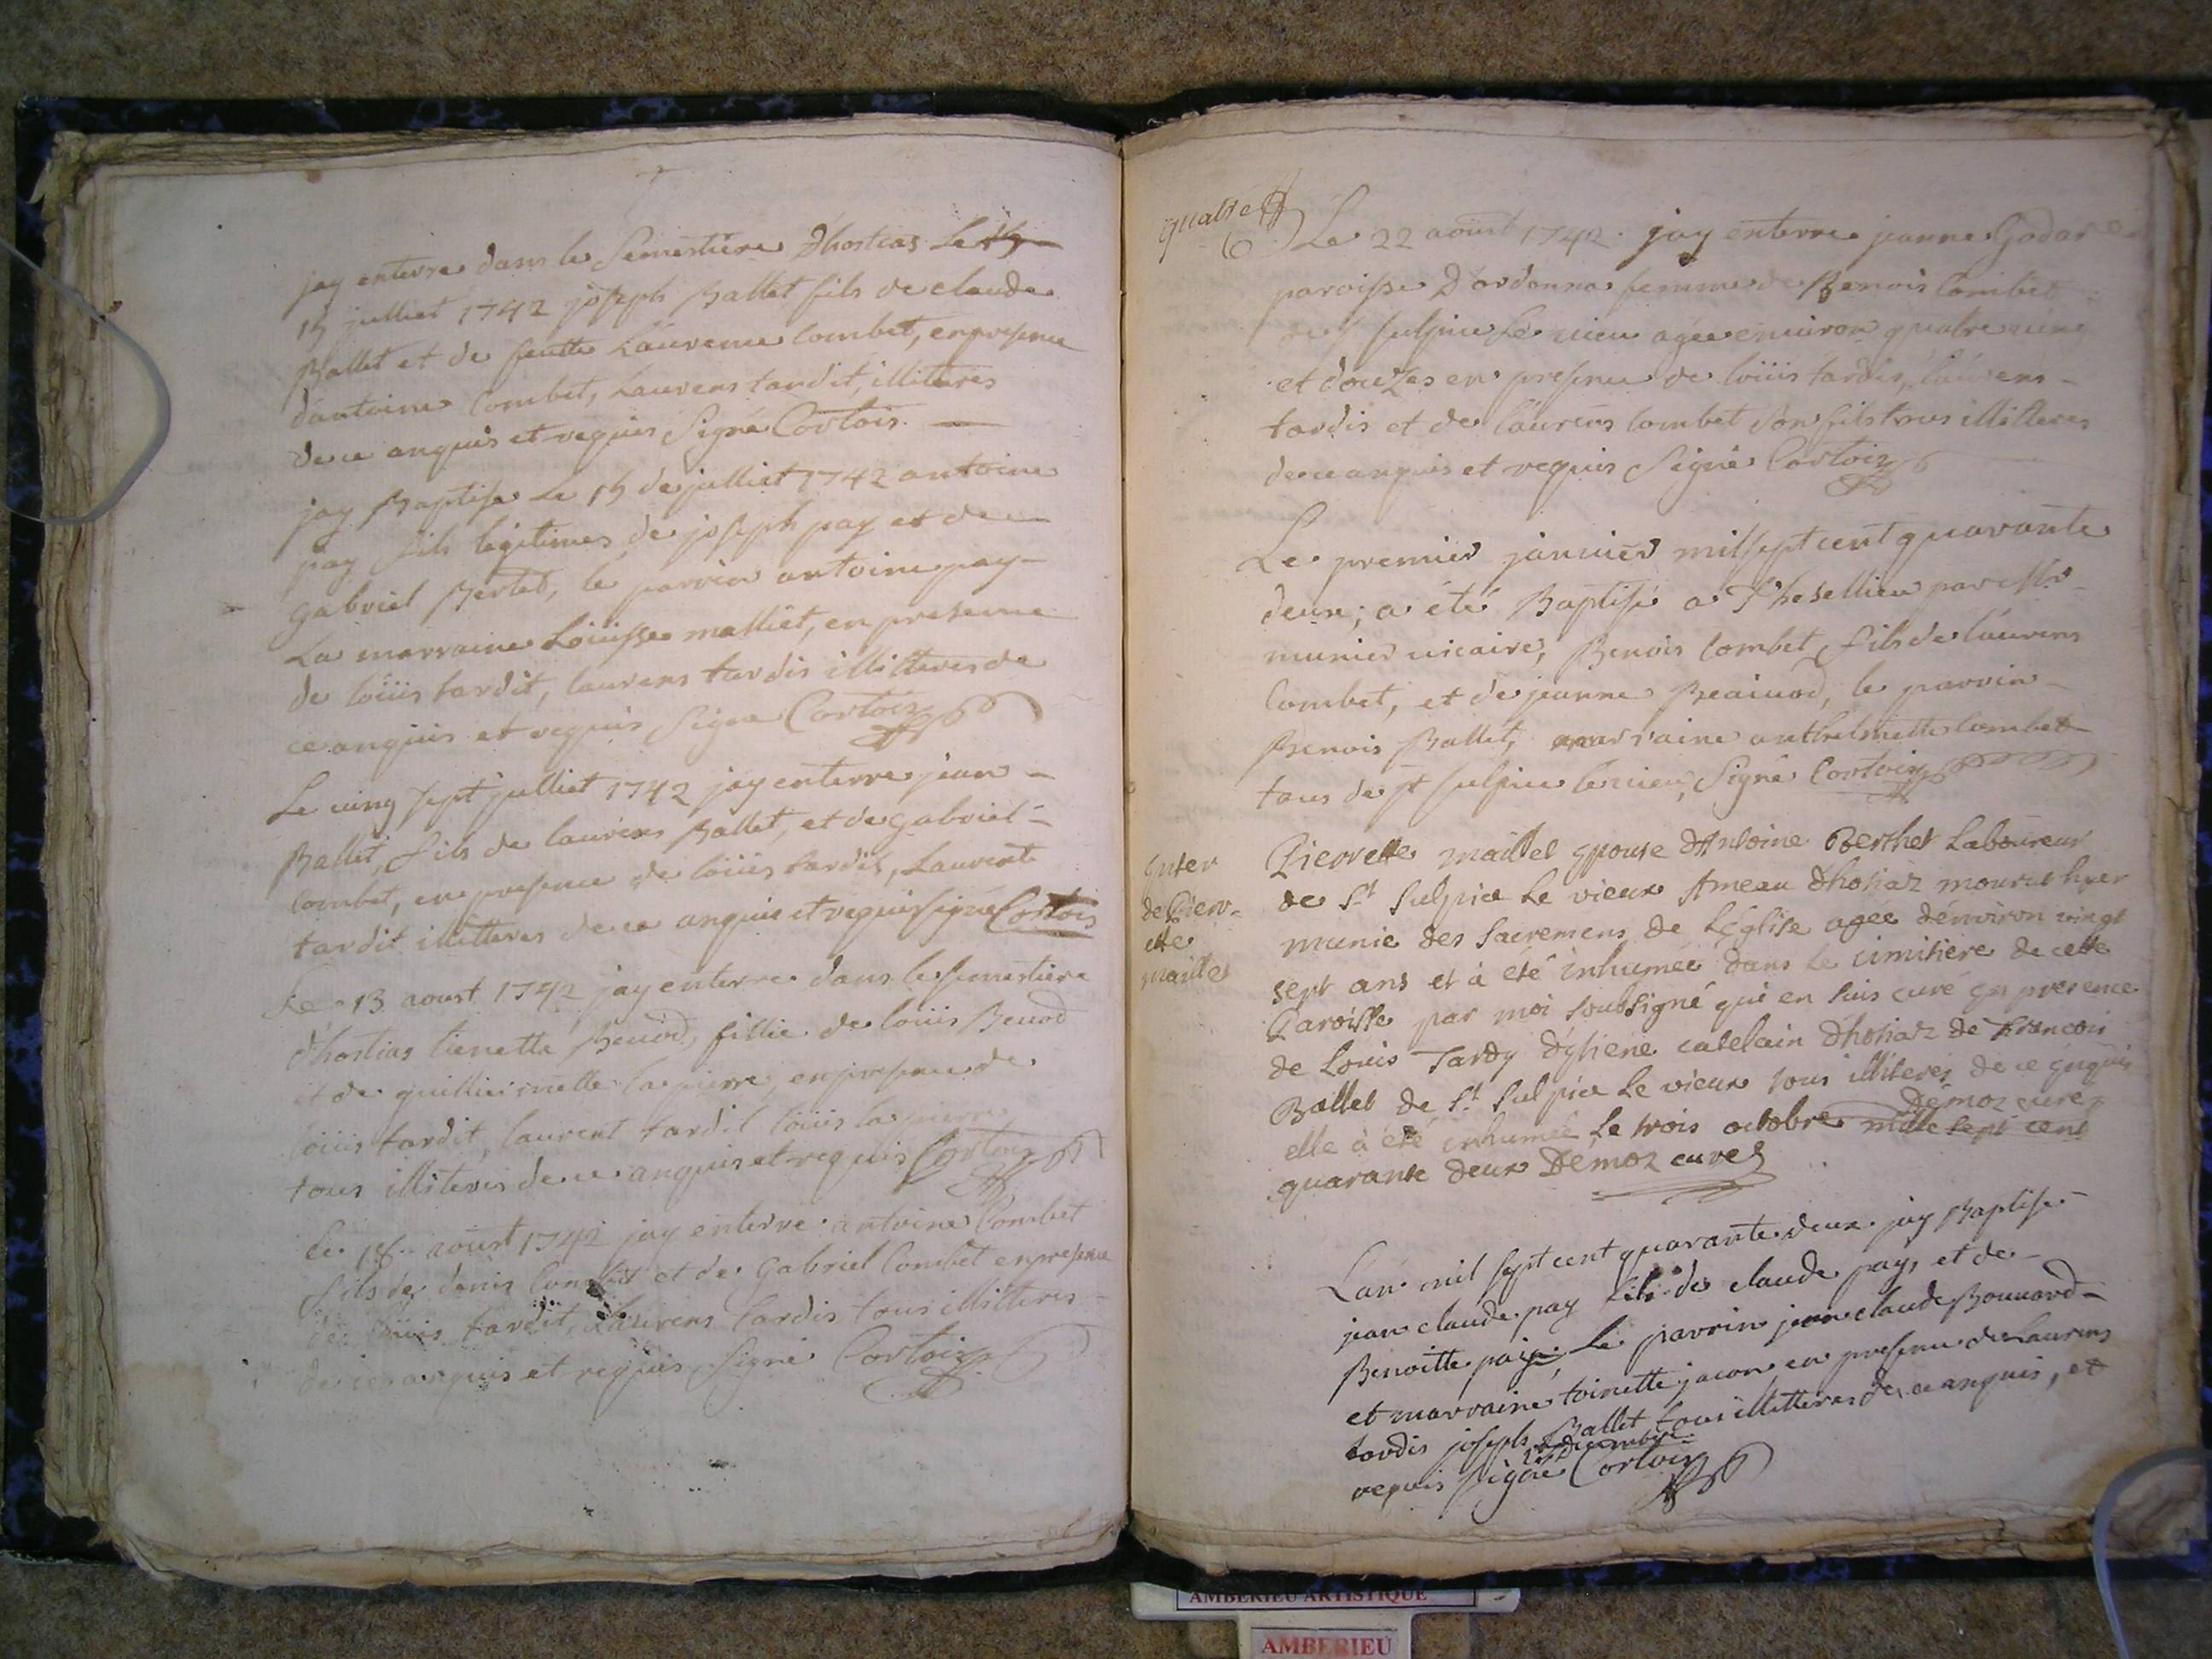 jay enterre dans le Semestiere Dhostias Le 15
15 julliet 1742 joseph Ballet fils de claude
Ballet et de feutte Laurence Combet, enpresence
d'antoine Combet, Laurens tardit, illiteres
de ce anquis et requis Signé Cortois.
jay Baptise Le 15 de julliet 1742 antoine
pay fils legitimes de joseph pay et de
gabriel Bertet, le parrein antoine pay
La marraine Loüisse malliet, en presence
de loüis tardit, laurens tardis illitteres de
ce anquis et requis Signe Cortois
Le ving sept julliet 1742 jay enterre jean
Ballet, fils de laurens Ballet, et de gabriel
Combet, en presence de loüis tardis, Laurent
tardit illitteres de ce anquis et requis signé Cortois
Le 13 aoust 1742 jay enterre dans le semestiere
d'hostias tienette Benod, fillie de loüis Benod
et de guilliermette lapierre, enpresence de
loüis tardit, laurent tardit loüis lapierre
tous illiteres de ce anquis et requis Cortois
Le 18 aoust 1742 jay enterre antoine Combet
fils de denis Combet et de Gabriel Combet enpresence
de loüis tardit, Laurens tardis tous illitteres
de ce anquis et requis Signé Cortois
quatre
Le 22 aoust 1742 jay enterre jeanne Godar
paroisse D'ordonna femme de Benois Combet
de St sulpice Le vieu agée environ quatre vint
et douzes en presence de loüis tardis, laurens
tardis et de laurens Combet son fils tous illitteres
de ce anquis et requis Signé Cortois
Le premier janvier mil sept cent quarante
deux; a été Baptisé a Thesellieu par Mr
munier vicaire, Benois Combet fils de laurens
Combet, et de jeanne Beaivod, le parrin
Benois Ballet, marraine anthelmette Combet
tous de St sulpice le vieu, Signé Cortois
Enter
de Pierr-
ette
maillet
Pierrette maillet Epouse d'Antoine Berthet Laboureur
de St Sulpice Le vieux Ameau d'hostiaz mourut hyer
munie des sacremens de L'église agée d'environ vingt
sept ans et à été inhumée dans Le cimitiere de cette
Paroisse par moi soubsigné qui en suis curé En presence
de Louis Tardy Egliene catelain d'hostiaz de Francois
Ballet de St Sulpice Le vieux tous illiteres de ce Enquis
Démoz curé
elle à été inhumée Le trois octobre mille sept cent
quarante deux Démoz curé
Lan mil sept cent quarante deux jay Baptise
jean claude pay fils de claude pay, et de
Benoitte paiy; Le parrin jean claude Bonnard
et marraine toinette jacon, en presence de Laurens
tardis joseph Ballet tous illitteres de ce anquis, et
decembre
requis Signé Cortois
AMBERIEU ARTISTIQUE
AMBERIEU